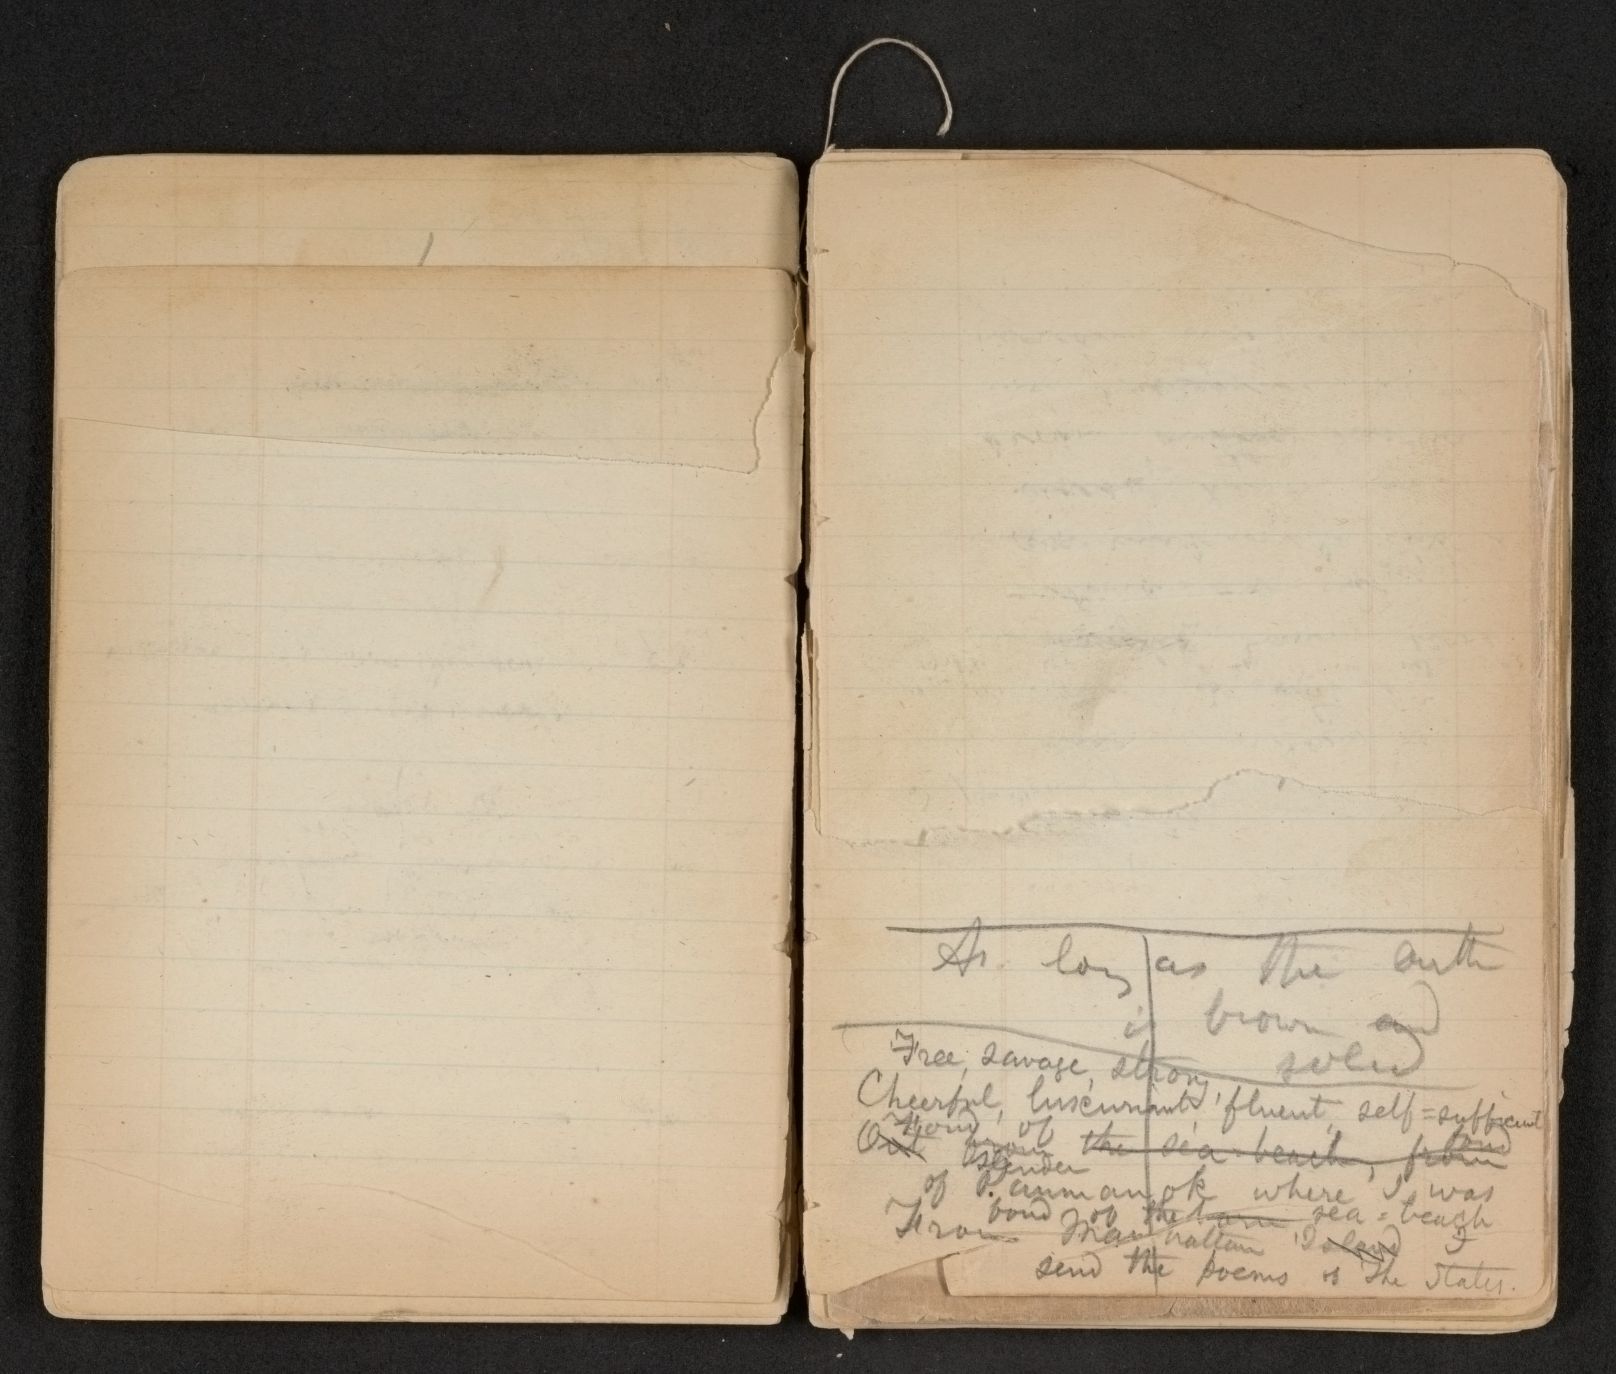 As long as the earth
is brown and
solid
Free, savage, strong
Cheerful, luxuriant, fluent, self=sufficient
Fond of fond
Out from the sea-beach, from
slender
of Paumanok where I was
fond of the born sea=beach
From Manhattan Island I
send the poems of The States.